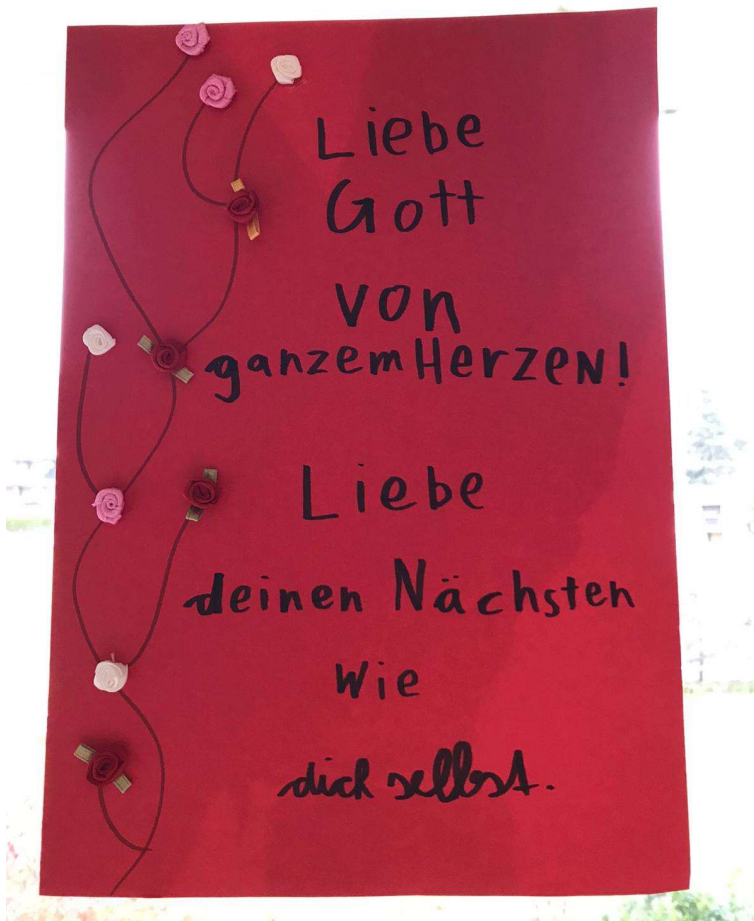 Liebe
Gott
von
ganzem Herzen!
Liebe
deinen Nächsten
wie
dich selbst.